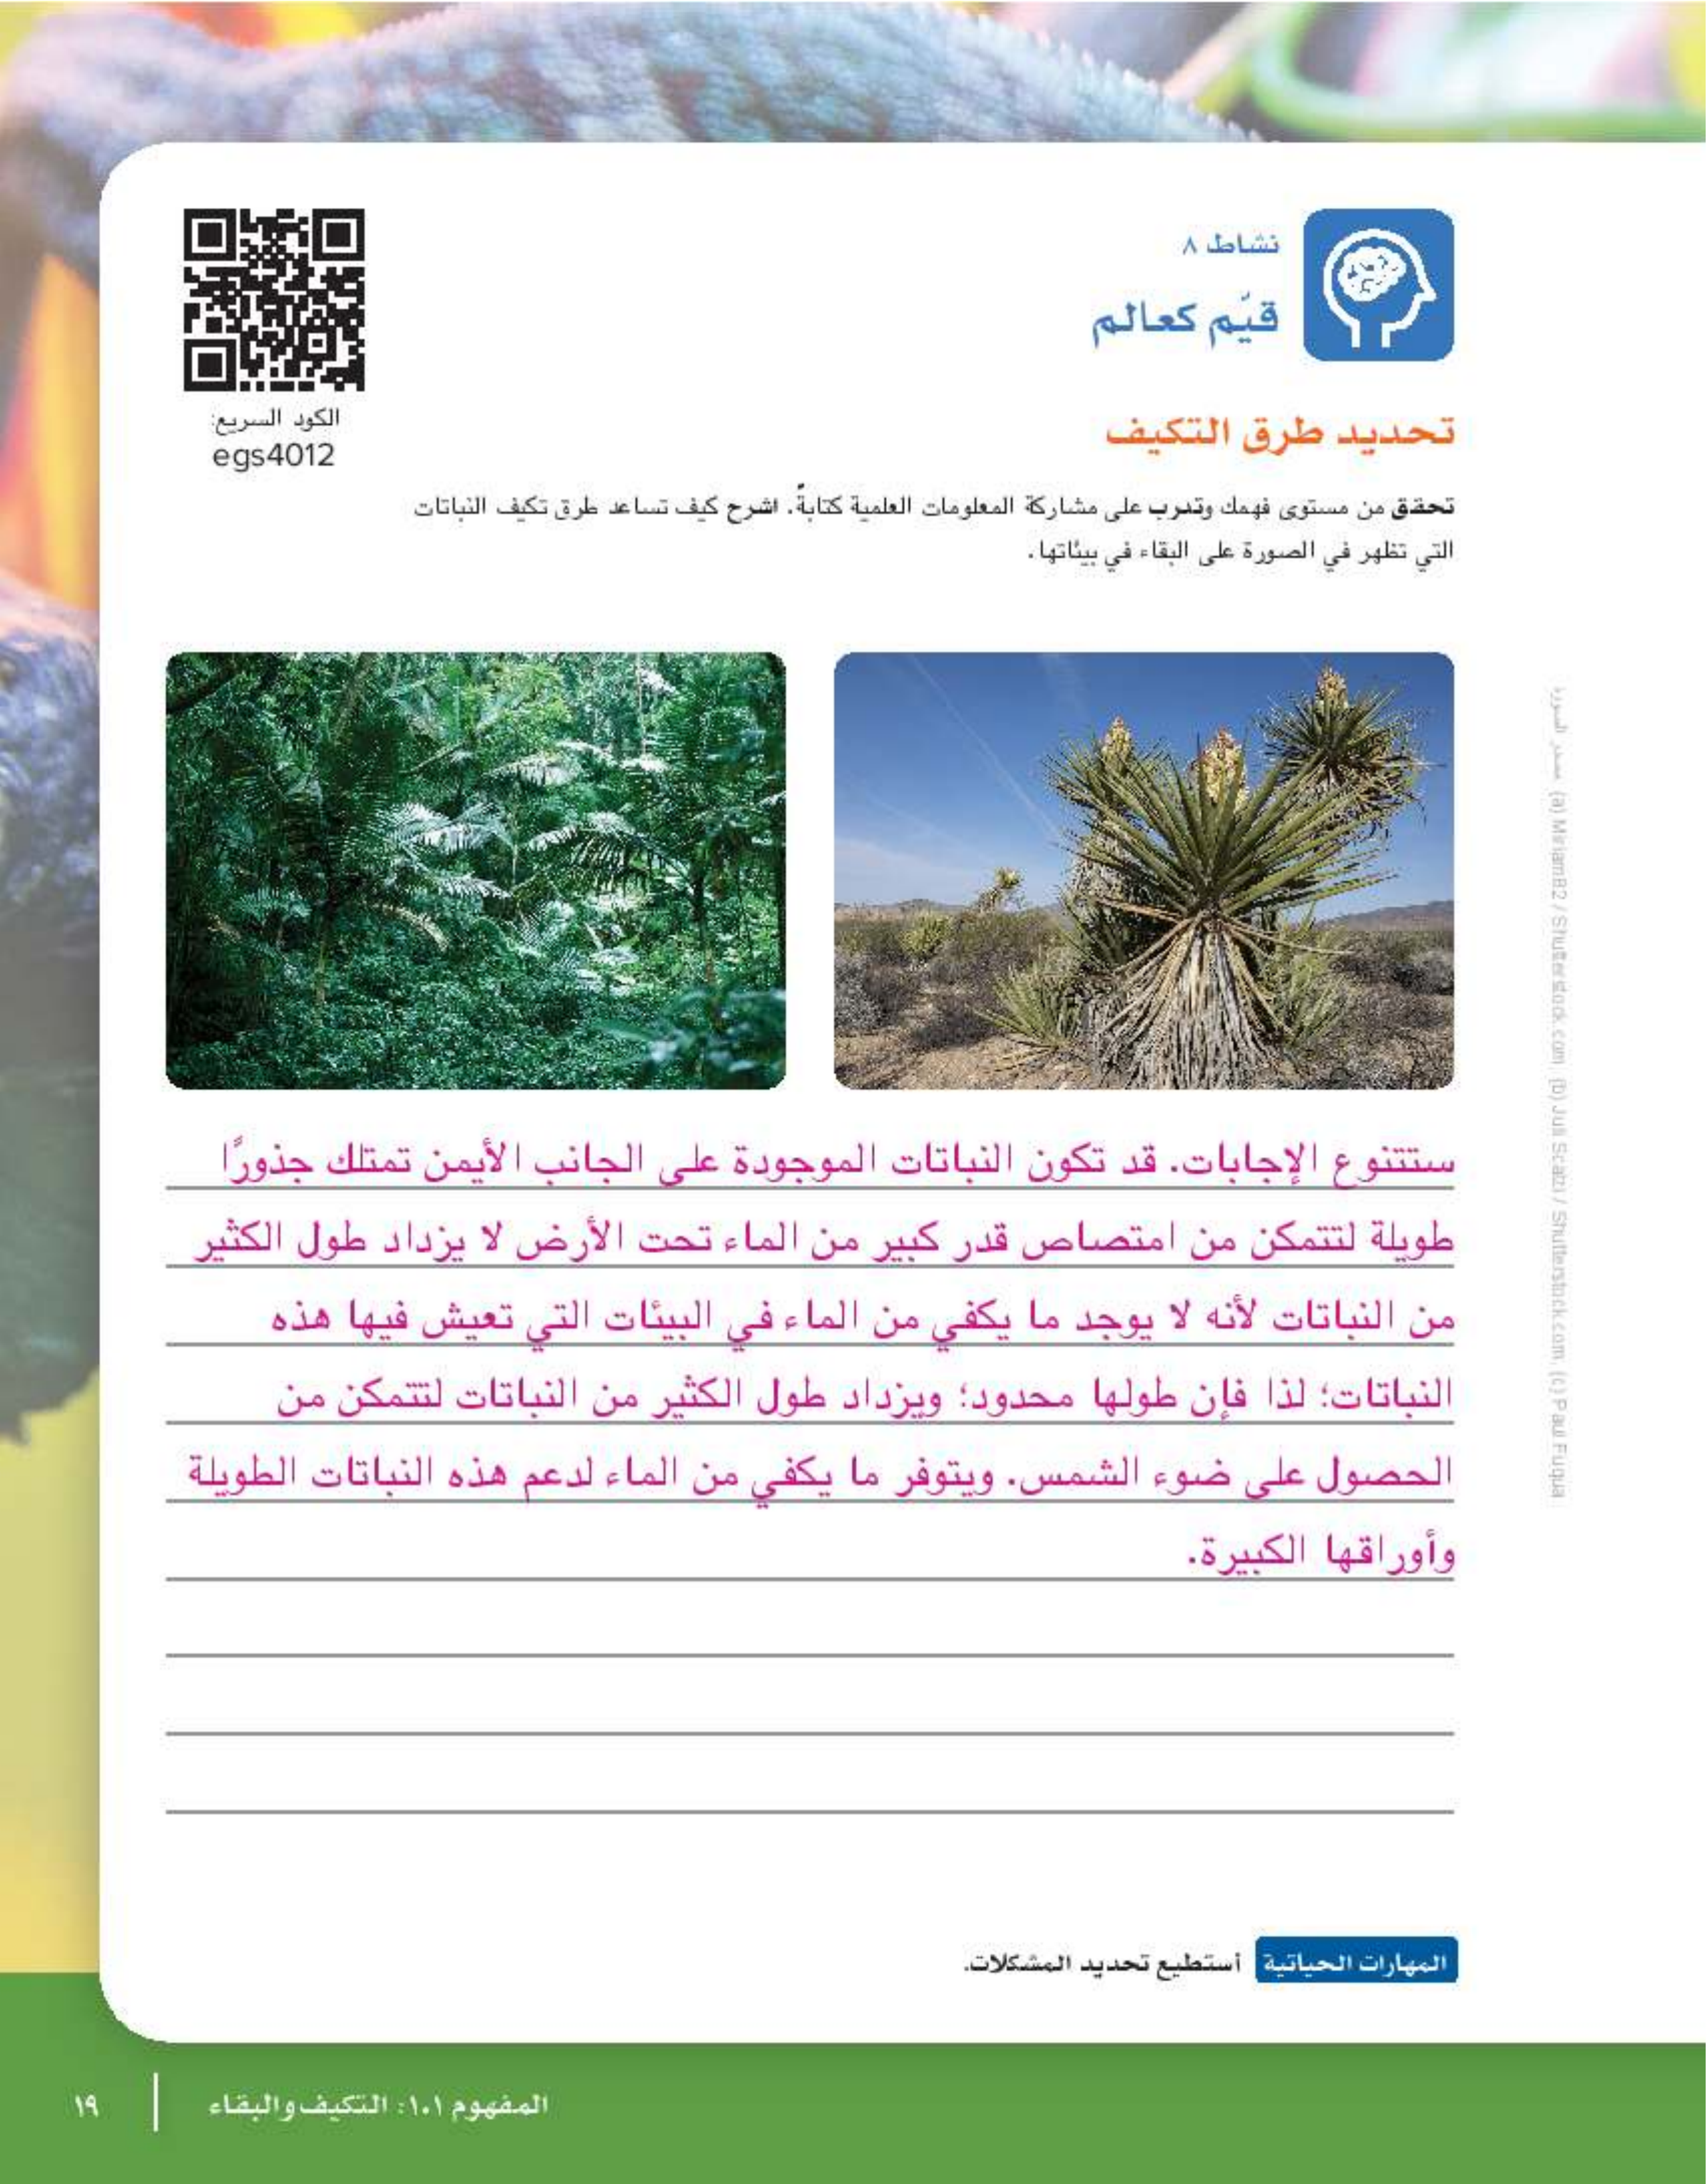 نشاط ٨
قيّم كعالم
الكود السريع:
egs4012
تحديد طرق التكيف
تحقق من مستوى فهمك وتدرب على مشاركة المعلومات العلمية كتابةً. اشرح كيف تساعد طرق تكيف النباتات
التي تظهر في الصورة على البقاء في بيئاتها.
ستتنوع الإجابات. قد تكون النباتات الموجودة على الجانب الأيمن تمتلك جذورًا
طويلة لتتمكن من امتصاص قدر كبير من الماء تحت الأرض لا يزداد طول الكثير
من النباتات لأنه لا يوجد ما يكفي من الماء في البيئات التي تعيش فيها هذه
النباتات؛ لذا فإن طولها محدود؛ ويزداد طول الكثير من النباتات لتتمكن من
الحصول على ضوء الشمس. ويتوفر ما يكفي من الماء لدعم هذه النباتات الطويلة
وأوراقها الكبيرة.
المهارات الحياتية أستطيع تحديد المشكلات.
مصدر الصورة: (a) MiriamB2 / Shutterstock.com, (b) Juli Scalzi / Shutterstock.com, (c) Paul Fuqua
المفهوم ١.١: التكيف والبقاء
١٩